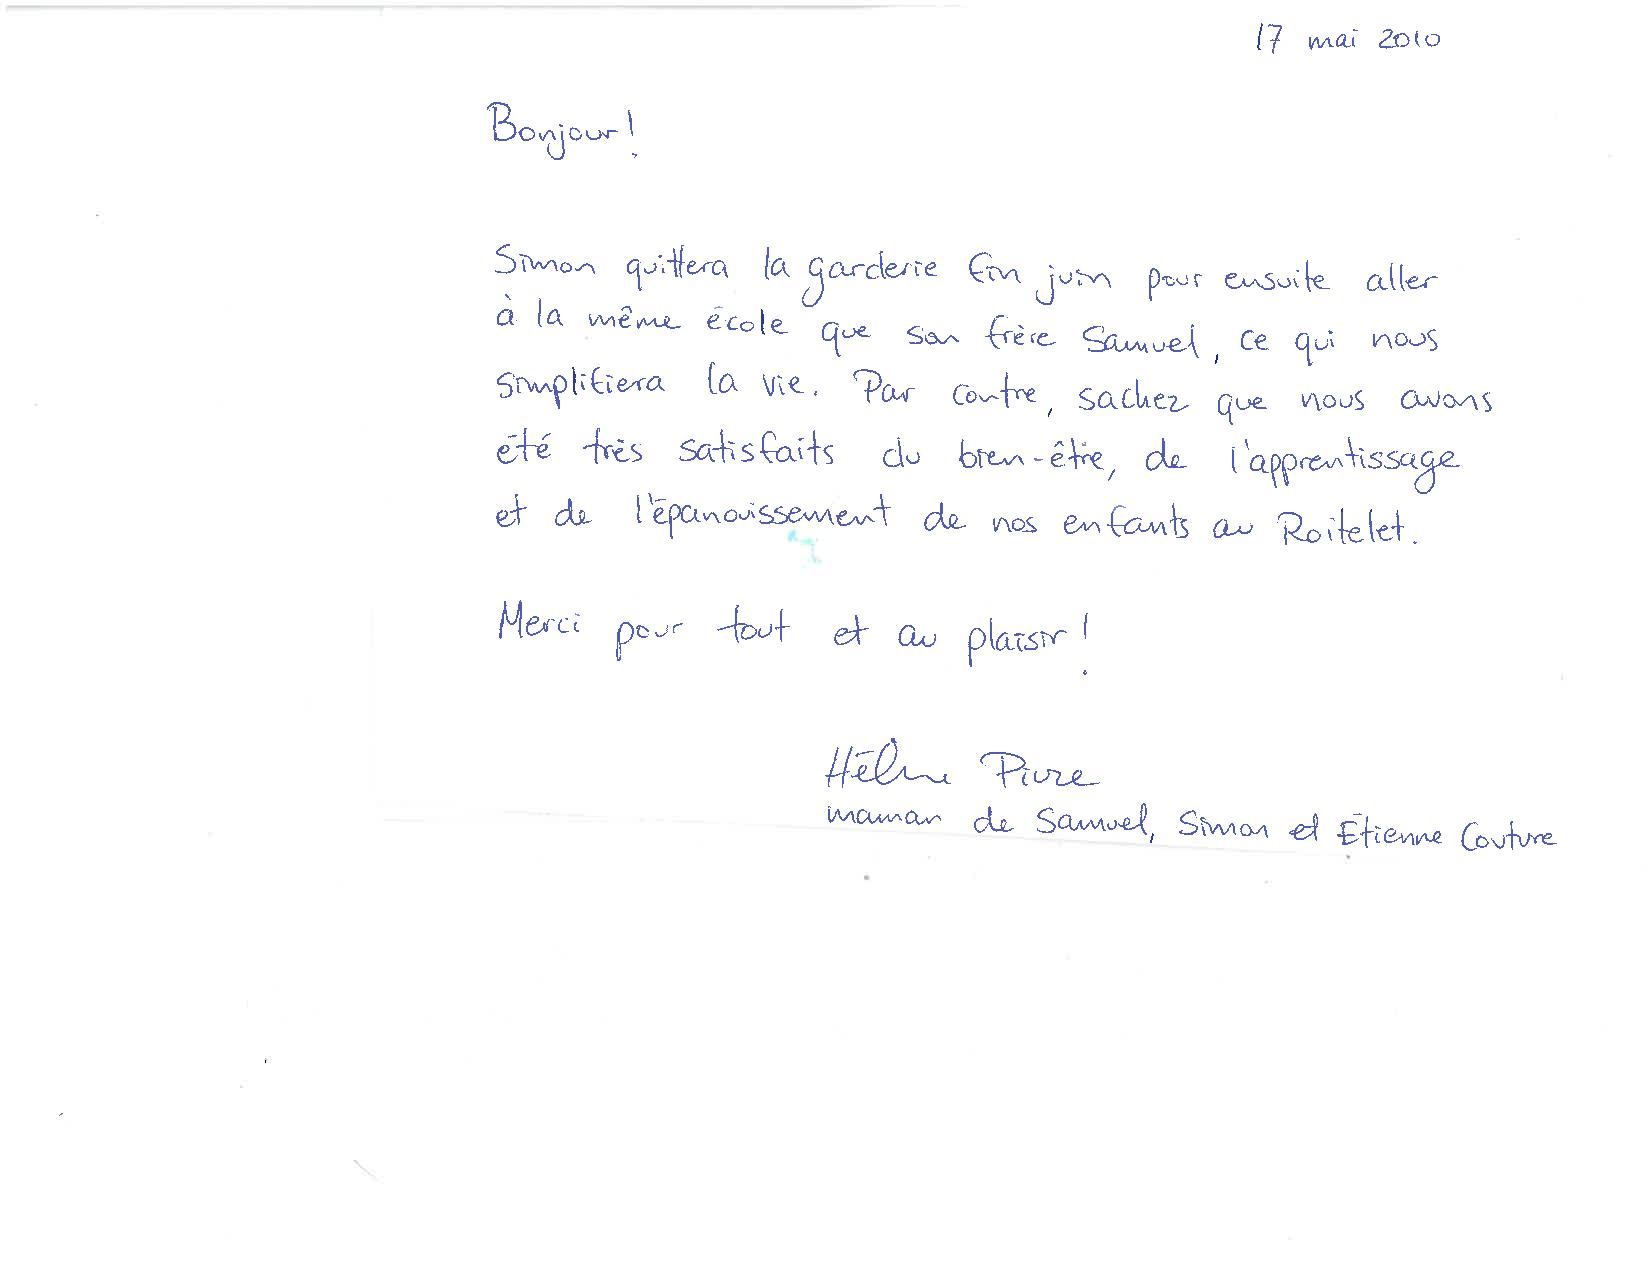 17 mai 2010
Bonjour!
Simon quittera la garderie fin juin pour ensuite aller
à la même école que son frère Samuel, ce qui nous
simplifiera la vie. Par contre, sachez que nous avons
été très satisfaits du bien-être, de l'apprentissage
et de l'épanouissement de nos enfants au Roitelet.
Merci pour tout et au plaisir!
Hélène
maman de Samuel, Simon et Étienne Couture